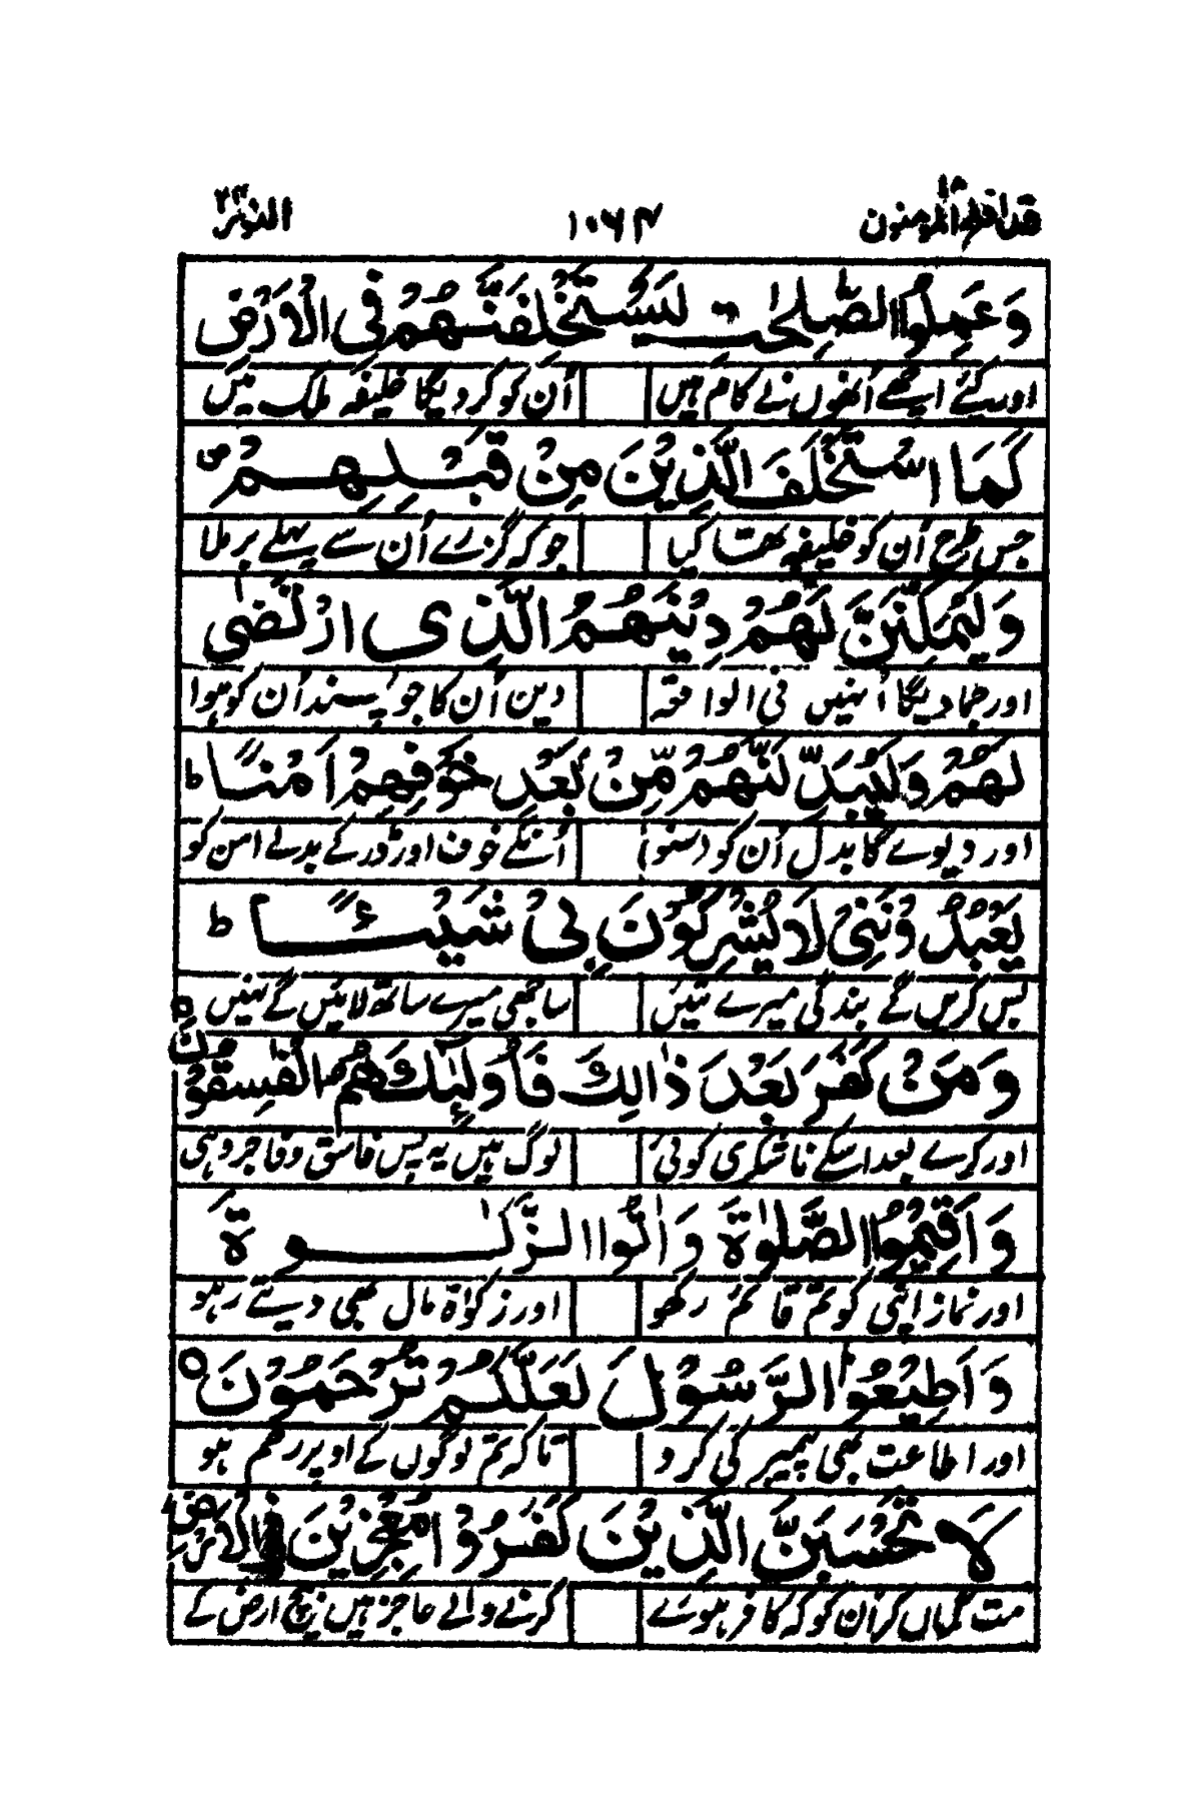 قد افلح المؤمنون ۱۸ ۱۰۶۴ النور ۲۴
وَعَمِلُوا الصّٰلِحٰتِ لَيَسْتَخْلِفَنَّهُمْ فِى الْاَرْضِ
اور کئے اچھے اُنھوں نے کام ہیں اُن کو کر دیگا خلیفہ ملک میں
كَمَا اسْتَخْلَفَ الَّذِيْنَ مِنْ قَبْلِهِمْ ص
جس طرح اُن کو خلیفہ تھا کیا جو کہ گزرے اُن سے پہلے برملا
وَلَيُمَكِّنَنَّ لَهُمْ دِيْنَهُمُ الَّذِى ارْتَضٰى
اور جما دیگا اُنہیں فی الواقعہ دین اُن کا جو پسند اُن کو ہوا
لَهُمْ وَلَيُبَدِّلَنَّهُمْ مِّنْۢ بَعْدِ خَوْفِهِمْ اَمْنًا ط
اور دیوے گا بدل اُن کو (سنو) اُنکے خوف اور ڈر کے بدلے امن کو
يَعْبُدُوْنَنِىْ لَا يُشْرِكُوْنَ بِىْ شَيْـــًٔا ط
بس کریں گے بندگی میرے تئیں ساجھی میرے ساتھ لائیں گے نہیں
وَمَنْ كَفَرَ بَعْدَ ذٰالِكَ فَاُولٰٓئِكَ هُمُ الْفٰسِقُوْنَ ○
اور کرے بعد اسکے ناشکری کوئی لوگ ہیں یہ پس فاسق و فاجر وہی
وَاَقِيْمُوا الصَّلٰوةَ وَاٰتُوا الـزَّكٰـــوةَ
اور نماز اپنی کو تم قائم رکھو اور زکوٰۃ مال بھی دیتے رہو
وَاَطِيْعُوا الرَّسُوْلَ لَعَلَّكُمْ تُرْحَمُوْنَ ○
اور اطاعت بھی پیمبر کی کرو تاکہ تم لوگوں کے اوپر رحم ہو
لَا تَحْسَبَنَّ الَّذِيْنَ كَفَرُوْا مُعْجِزِيْنَ فِى الْاَرْضِ ج
مت گماں کر اُن کو کہ کافر ہوئے کرنے والے عاجز ہیں بیچ ارض کے